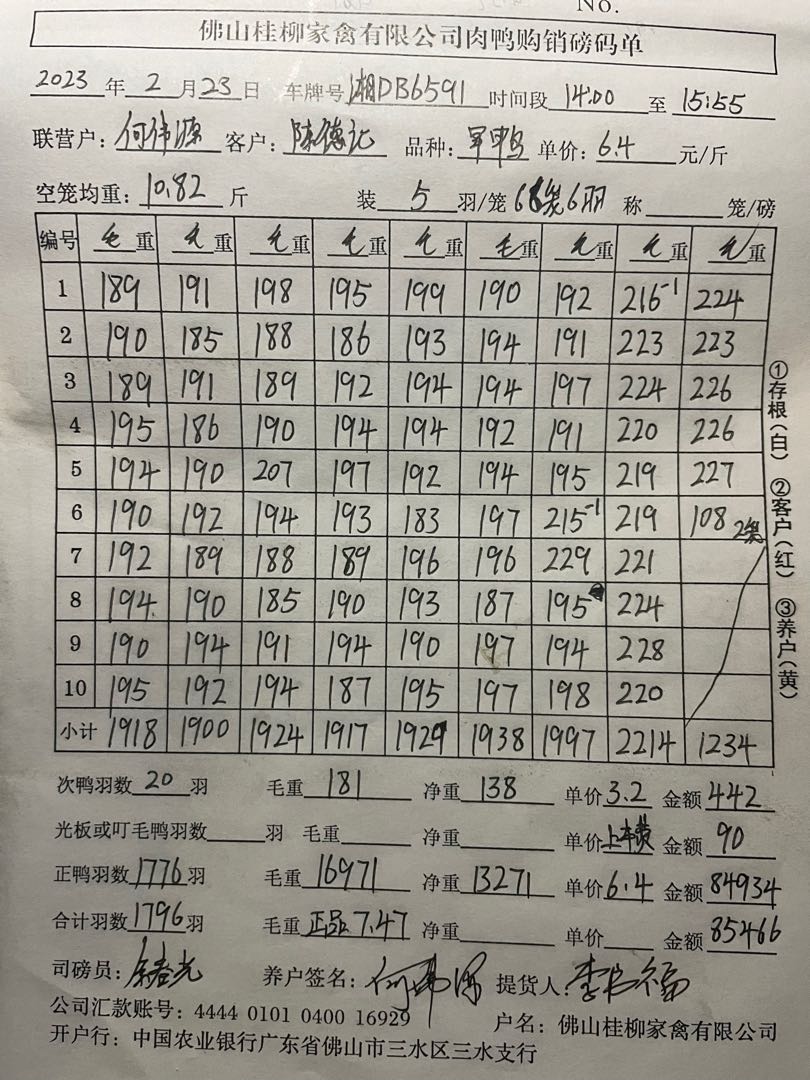 No.
佛山桂柳家禽有限公司肉鸭购销磅码单
2023 年 2 月 23 日 车牌号 湘DB6591 时间段 14:00 至 15:55
联营户: 何伟源 客户: 陈德记 品种: 单价: 6.4 元/斤
空笼均重: 10.82 斤 装 5 羽/笼 68笼6羽 称 笼/磅
编号 毛重 毛重 毛重 毛重 毛重 毛重 毛重 毛重 毛重
1 189 191 198 195 199 190 192 216-1 224
2 190 185 188 186 193 194 191 223 223
3 189 191 189 192 194 194 197 224 226
4 195 186 190 194 194 192 191 220 226
5 194 190 207 197 192 194 195 219 227
6 190 192 194 193 183 197 215-1 219 108 2笼
7 192 189 188 189 196 196 229 221
8 194 190 185 190 193 187 195 224
9 190 194 191 194 190 197 194 228
10 195 192 194 187 195 197 198 220
小计 1918 1900 1924 1917 1929 1938 1997 2214 1234
次鸭羽数 20 羽 毛重 181 净重 138 单价 3.2 金额 442
光板或叮毛鸭羽数 羽 毛重 净重 单价 金额 90
正鸭羽数 1776 羽 毛重 16971 净重 13271 单价 6.4 金额 84934
合计羽数 1796 羽 毛重 正品7.47 净重 单价 金额 85466
司磅员: 养户签名: 何伟源 提货人: 李书福
公司汇款账号: 4444 0101 0400 16929 户名: 佛山桂柳家禽有限公司
开户行: 中国农业银行广东省佛山市三水区三水支行
①存根(白) ②客户(红) ③养户(黄)